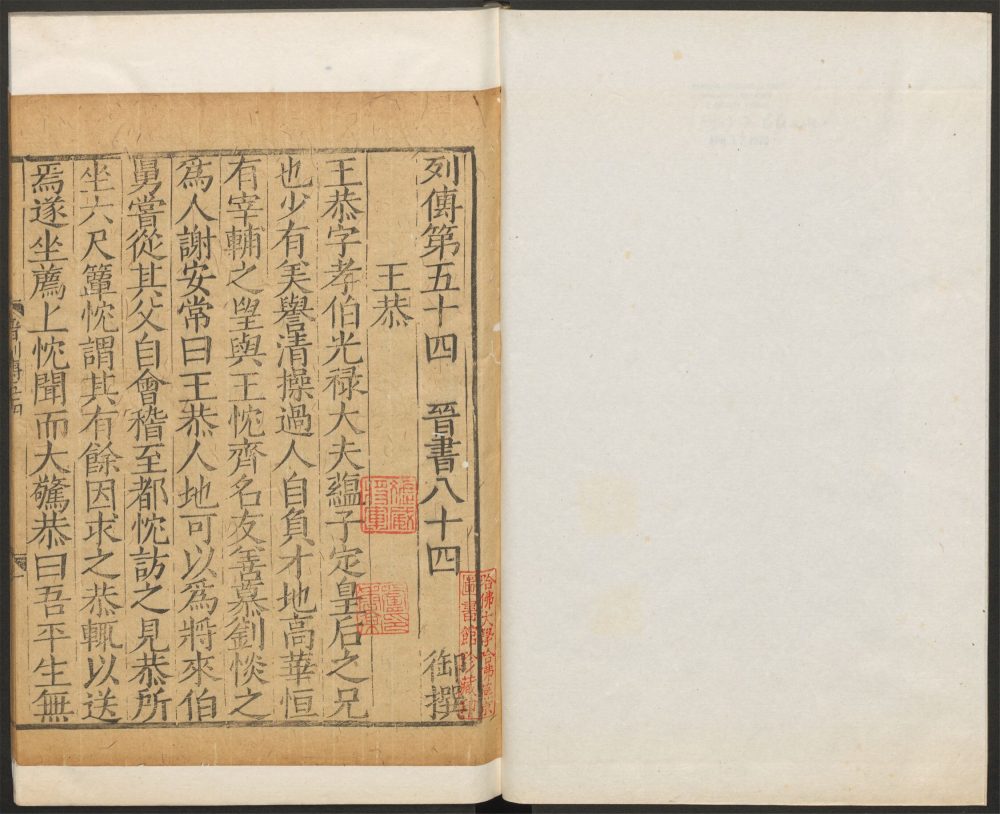 列傳第五十四 晉書八十四 御撰
王恭
王恭字孝伯光禄大夫蘊子定皇后之兄
也少有羙譽清操過人自負才地高華恒
有宰輔之望與王忱齊名友善慕劉惔之
為人謝安常曰王恭人地可以為將來伯
舅嘗從其父自會稽至都忱訪之見恭所
坐六尺簟忱謂其有餘因求之恭輒以送
焉遂坐薦上忱聞而大驚恭曰吾平生無
哈佛大學哈佛燕京
圖書館珍藏印